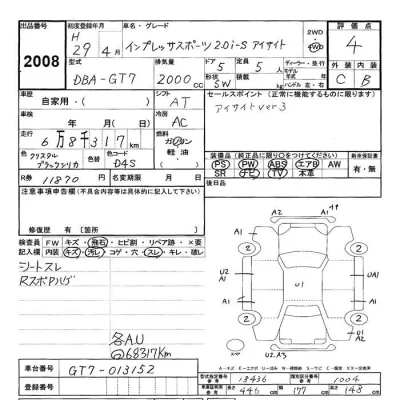 出品番号 初度登録年月 車名・グレード 2WD 評価点
H 29年 4月 インプレッサスポーツ 2.0i-S アイサイト 4WD 4
2008 型式 排気量 ドア 5 定員 5 ディーラー・並行 外装 内装
DBA-GT7 2000cc 形状 SW 積載量 モデル年式 ハンドル 左・右 C B
車歴 シフト セールスポイント(正常に機能するものに限ります)
自家用・( ) AT アイサイトver3
車検 年 月 冷房 AC
走行 68千317km 燃料 ガソリン
色 クリスタルブラックシリカ 色替 色コード D4S 軽油
装備品(純正品に限り○をつけてください) 新車保証書
PS PW ABS エアB AW 有・無
R券 11870 円 名変期限 月 日 SR ナビ TV 本革
注意事項申告欄(不具合などは具体的に記入して下さい) 後日品
修復歴 有( )箇所
検査員記入欄 FW キズ・飛石・ヒビ割・リペア跡・×要
内装 キズ・汚レ・コゲ・穴・スレ・キレ・破レ
シートスレ
RスポAハゲ
各AU
@68317Km
1キ
A2 A1
A1 A1
2 2
U2 A1 U1 UA1
2 2
U2 A1
スペア
U2.A3
車台番号 GT7-013152
登録番号
型式指定番号 参考 18436 類別区分番号 参考 1004
車両証明用 参考 長さ 446cm 幅 177cm 高さ 148cm